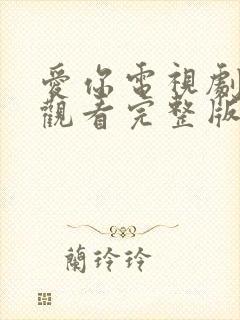 愛你電視劇
觀看完整版
蘭玲玲